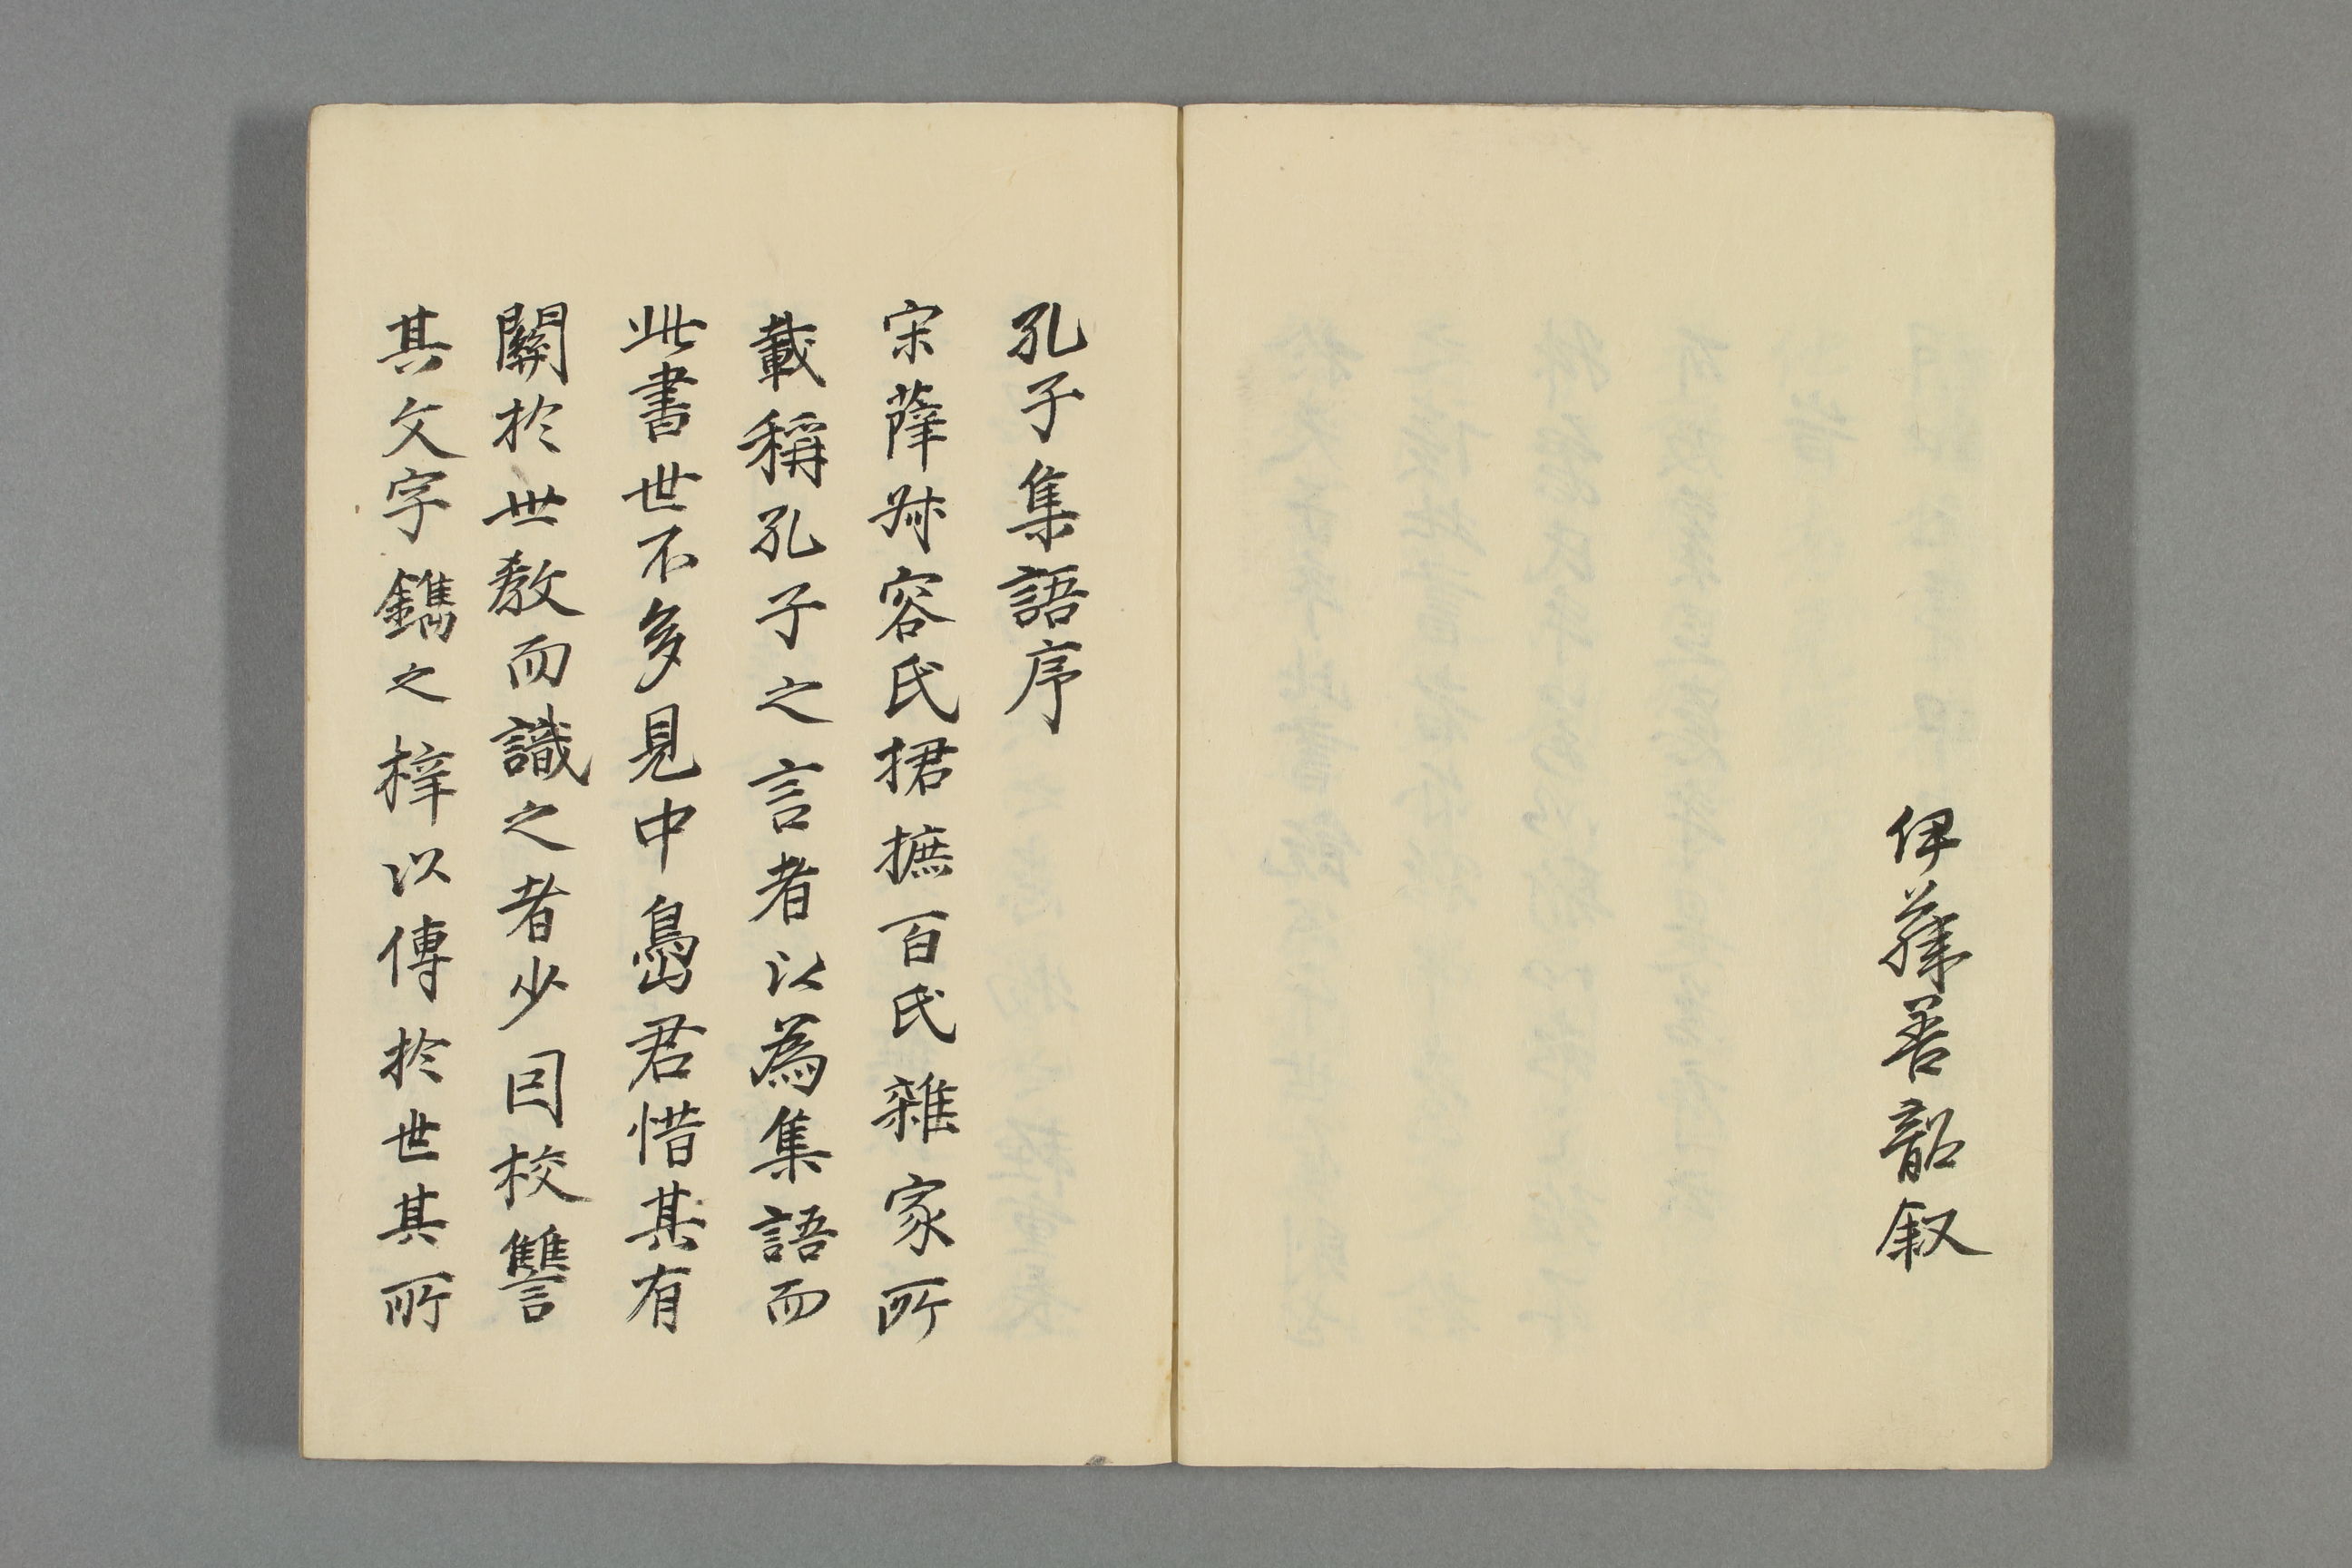 伊藤善韶叙
孔子集語序
宋薛叔容氏捃摭百氏雜家所
載稱孔子之言者以為集語而
此書世不多見中島君惜其有
關於世教而識之者少因校讐
其文字鐫之梓以傳於世其所